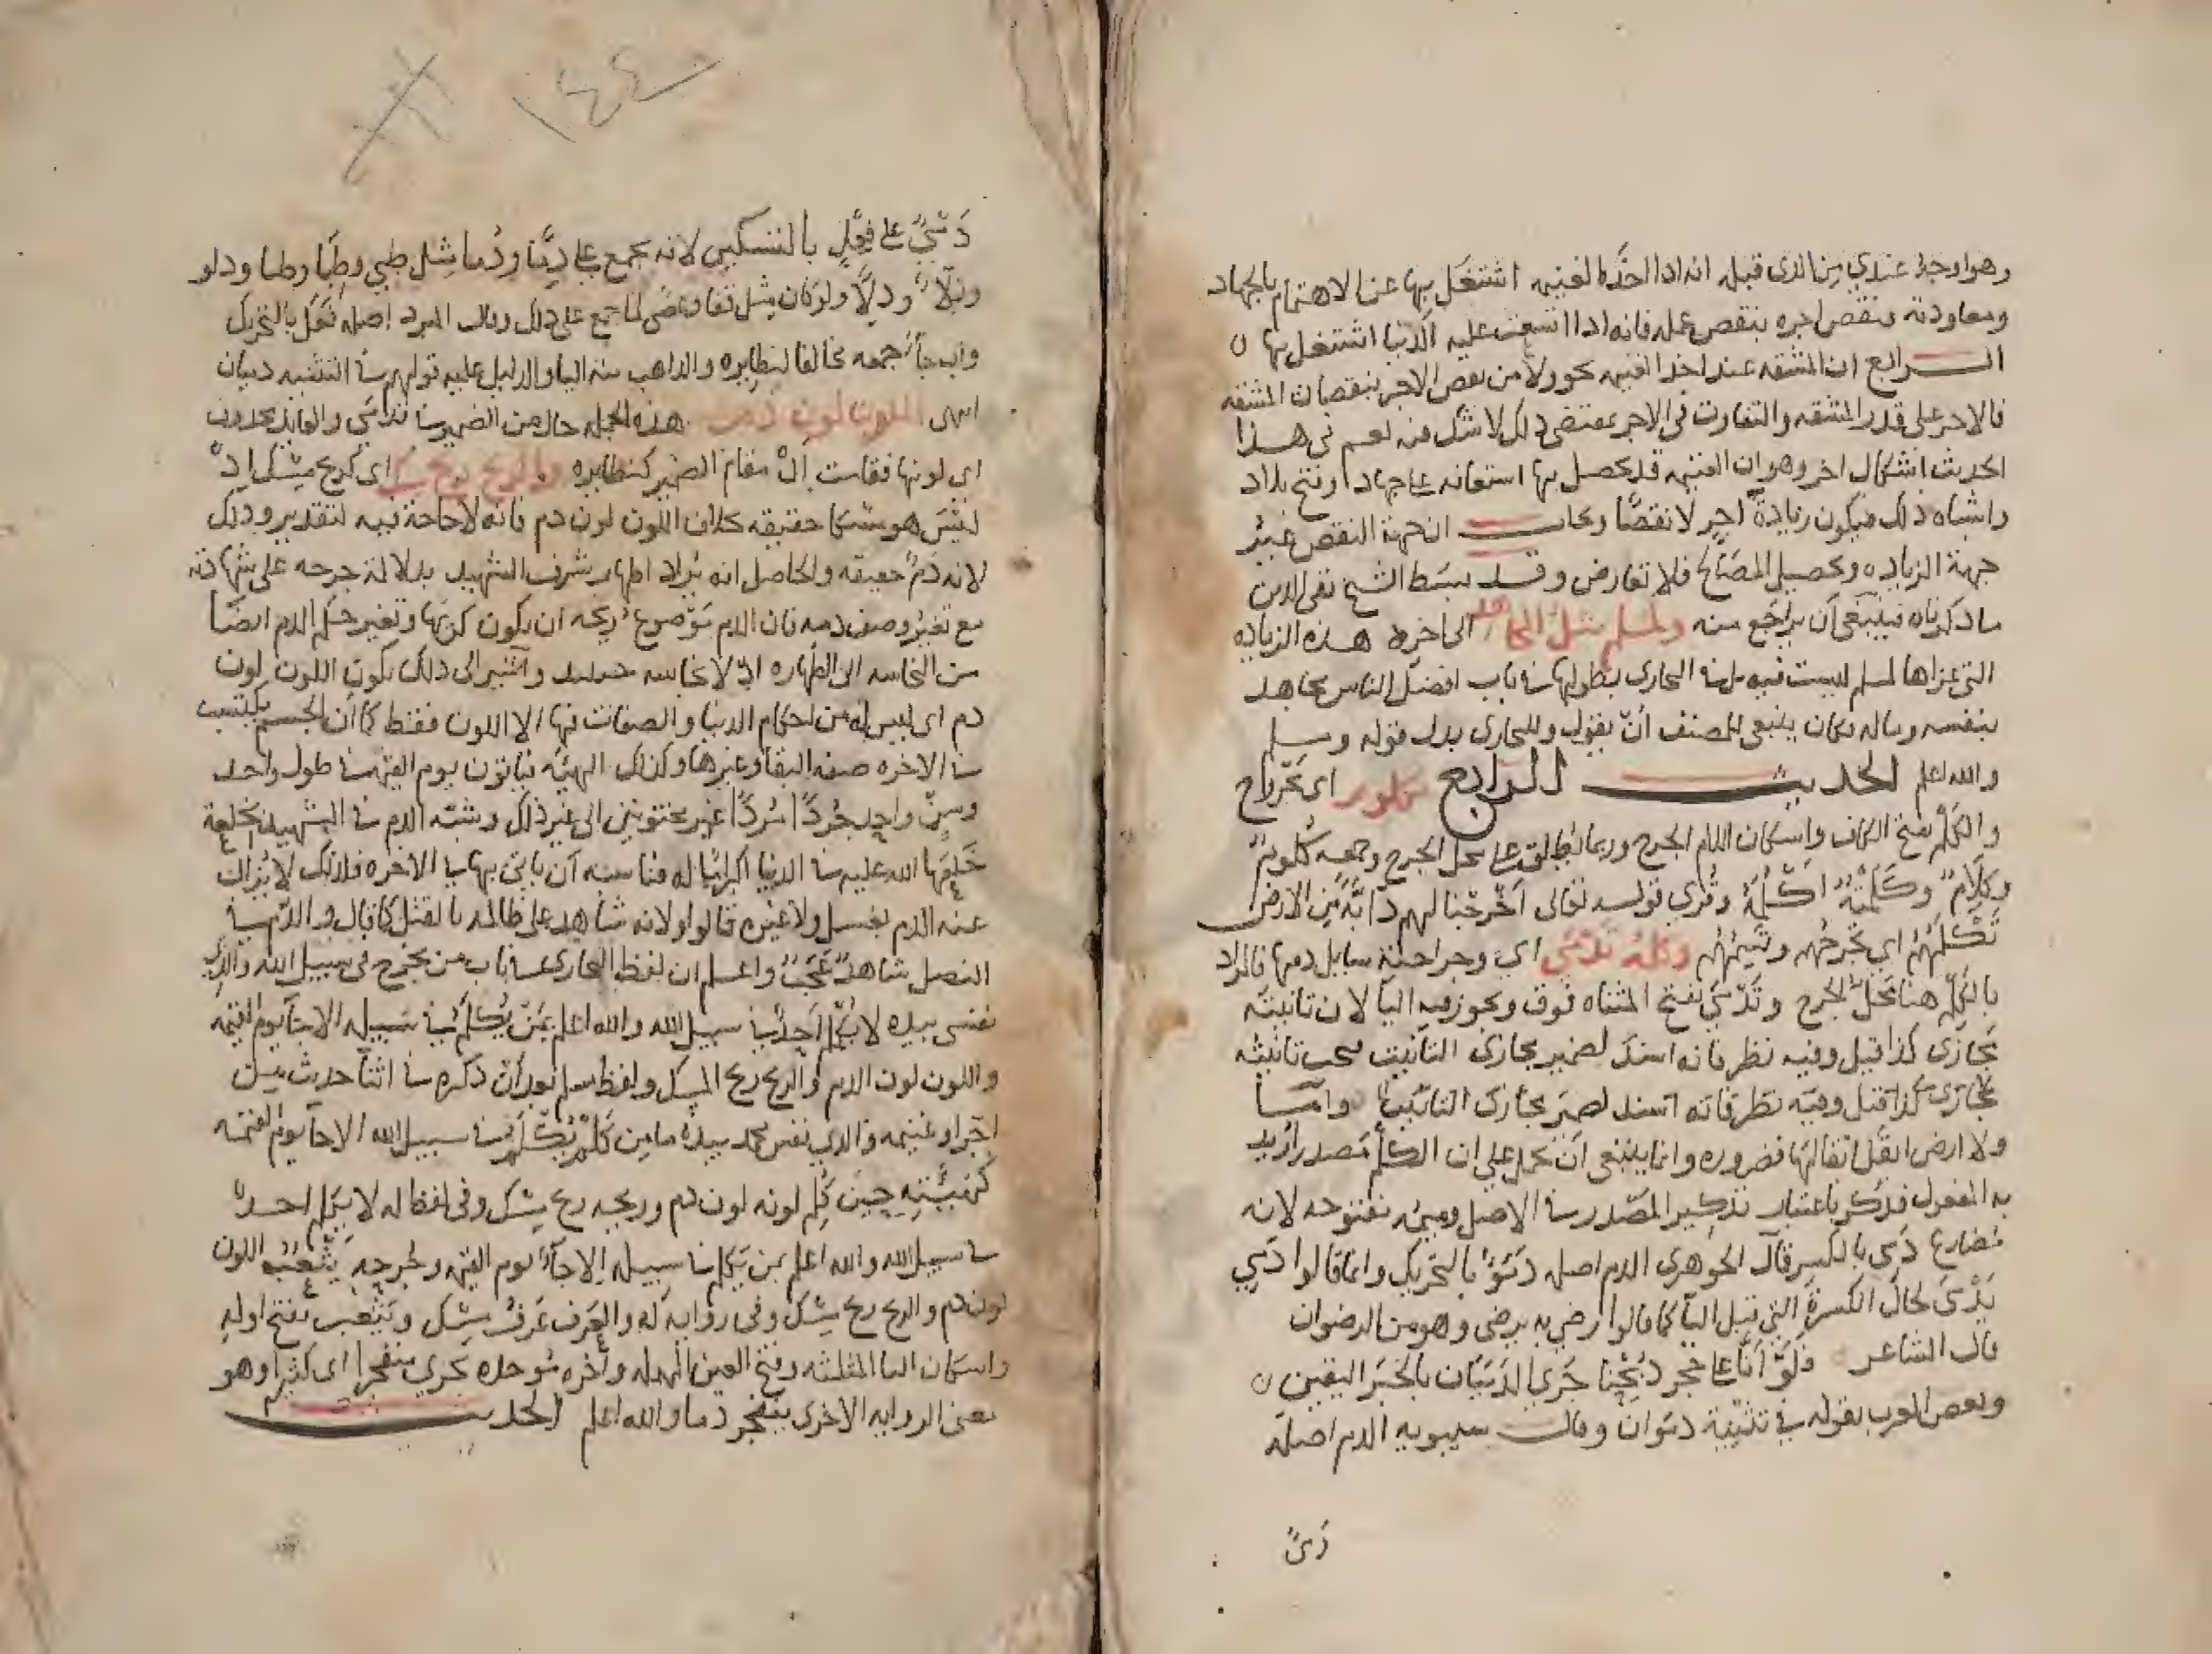 وهو اوجه عندي من الذى قبله انه اذا اخذ الغنيمه اشتغل بها عن الاهتمام بالجهاد
ومعاودته فنقص اجره بنقص عمله فانه اذا اتسعت عليه الدنيا اشتغل بها
الرابع ان المشقه عند اخذ الغنيمه نقص الاجر بنقصان المشقه
فالاجر على قدر المشقه والتفاوت فى الاجر مقتضى ذلك لا شك فيه نعم فى هذا
الحديث اشكال اخر وهو ان الغنيمه قد يحصل بها استعانه على جهاد او فتح بلاد
واشباه ذلك فيكون زيادة اجر لا نقصا ويجاب ان جهة النقص غير
جهة الزياده وتحصيل المصالح فلا تعارض وقد بسط الشيخ تقى الدين
ما ذكرناه فينبغى ان يراجع منه ولمسلم مثل المجاهد الى اخره هذه الزياده
التى عزاها لمسلم ليست فيه بل فى البخارى بطولها فى باب افضل الناس مجاهد
بنفسه وماله فكان ينبغى للمصنف أن يقول وللبخارى بدل قوله ومسلم
والله اعلم الحديث الرابع مكلوم اى مجروح
والكلم بفتح الكاف واسكان اللام الجرح وربما يطلق على محل الجرح وجمعه كلوم
وكلام وكلمته اكلمه وقرى قوله تعالى اخرجنا لهم دابة من الارض
تكلمهم اي تجرحهم وتسمهم وكلمه تدمى اي وجراحته سايل دمها فالمراد
بالكلم هنا محل الجرح وتدمى بفتح المثناه فوق ويجوز فيه اليا لان تانيثه
مجازى كذا قيل وفيه نظر فانه اسند لضمير مجازى التانيث فيجب تانيثه
مجازى كذا قيل وفيه نظر فانه اسند لضمير مجازى التانيث واما
ولا ارض ابقل ابقالها فضروره وانما ينبغى ان يحمل على ان الكلم مصدر اريد
به المفعول فذكر باعتبار تذكير المصدر فى الاصل وميمه مفتوحه لانه
مضارع دمى بالكسر قال الجوهرى الدم اصله دمو بالتحريك وانما قالوا دمي
يدمى لحال الكسرة التى قبل اليا كما قالوا رضي يرضى وهو من الرضوان
قال الشاعر فلو أنا على حجر ذبحنا جرى الدميان بالخبر اليقين
وبعض العرب يقول فى تثنيته دموان وقال سيبويه الدم اصله
دمى
١٤٤
دمي على فعل بالتسكين لانه يجمع على دماء ودمى مثل ظبي وظباء وظبى ودلو
ودلاء ودلى ولو كان مثل قفا وعصى لما جمع على ذلك وقال المبرد اصله فعل بالتحريك
وان جا جمعه مخالفا لنظايره والذاهب منه اليا والدليل عليه قولهم فى التثنيه دميان
انتهى اللون لون دم هذه الجمله حال من الضمير فى تدمى والعايد محذوف
اى لونها فقامت ال مقام الضمير كنظايره والريح ريح مسك اى كريح مسك اذ
ليس هو مسكا حقيقه بخلاف اللون لون دم فانه لا حاجة فيه لتقدير وذلك
لانه دم حقيقه والحاصل انه يراد اظهار شرف الشهيد بدلالة جرحه على شهادته
مع تغير وصف دمه فان الدم موضوع ريحه ان يكون كريها وتغير حكم الدم ايضا
من النجاسه الى الطهاره اذ لا نجاسه حينيذ واشير الى ذلك بكون اللون لون
دم اى ليس له من احكام الدنيا والصفات فيها الا اللون فقط كما أن الجسم يكتسب
فى الاخره صفه البقا وغيرها وكذلك الهيئه فياتون يوم القيمه فى طول واحد
وسن واحد جردا مردا غير مختونين الى غير ذلك وشبه الدم فى الشهيد بخلعة
خلعها الله عليه فى الدنيا اكراما له فناسب أن ياتى بها فى الاخره فلذلك لا يزال
عنه الدم بغسل ولا غيره قالوا ولانه شاهد على ظالمه بالقتل كما قال والدم فى
النصل شاهد عجب واعلم ان لفظ البخارى فى باب من يجرح فى سبيل الله والذي
نفسى بيده لا يكلم أحد فى سبيل الله والله اعلم بمن يكلم فى سبيله الا جآ يوم القيمه
واللون لون الدم والريح ريح المسك ولفظ مسلم بعد أن ذكره فى اثنآ حديث بين
اجر او غنيمه والذي نفس محمد بيده ما من كلم يكلم فى سبيل الله الا جآ يوم القيمه
كهيئته حين كلم لونه لون دم وريحه ريح مسك وفى لفظ له لا يكلم احد
فى سبيل الله والله اعلم بمن يكلم فى سبيله إلا جآ يوم القيمه وجرحه يثعب اللون
لون دم والريح ريح مسك وفى رواية له والعرف عرف مسك ويثعب بفتح اوله
واسكان الثا المثلثه وفتح العين المهمله واخره موحده يجري متفجرا اى كثيرا وهو
بمعنى الروايه الاخرى يتفجر دما والله اعلم الحديث